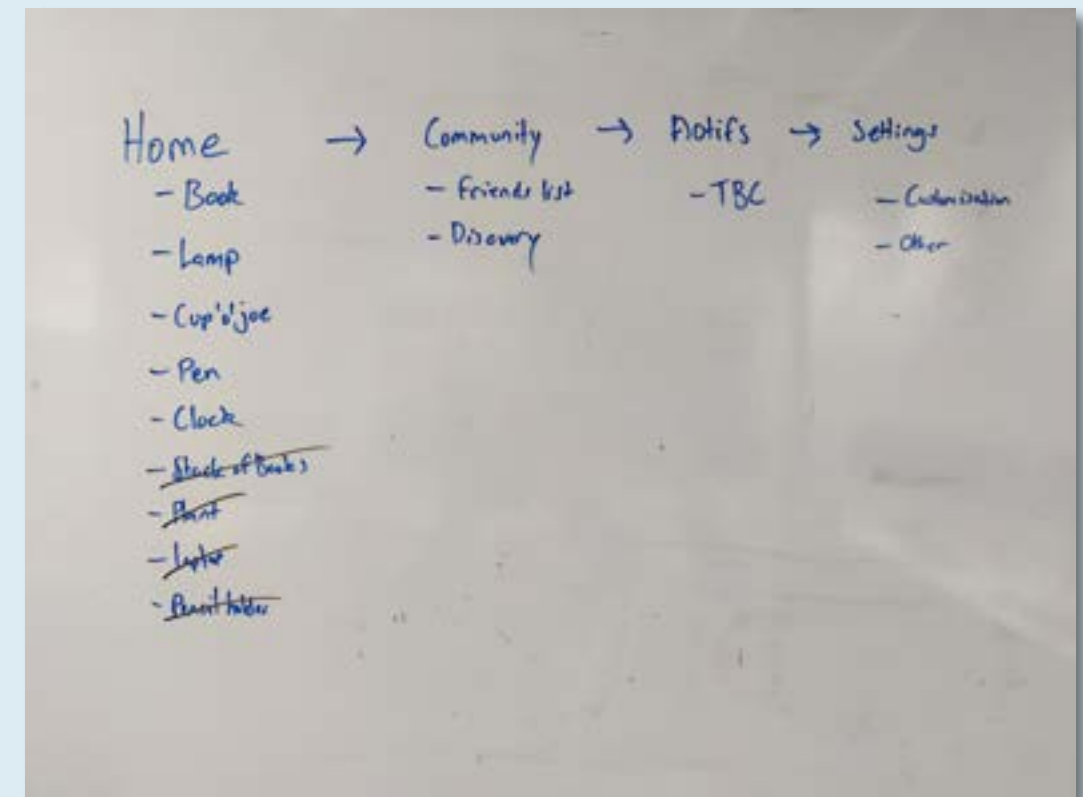 Home → Community → Notifs → Settings
- Book
- Lamp
- Cup'o'joe
- Pen
- Clock
- Stack of Books
- Plant
- Laptop
- Pencil holder
- Friends list
- Discovery
- TBC
- Customisation
- Other